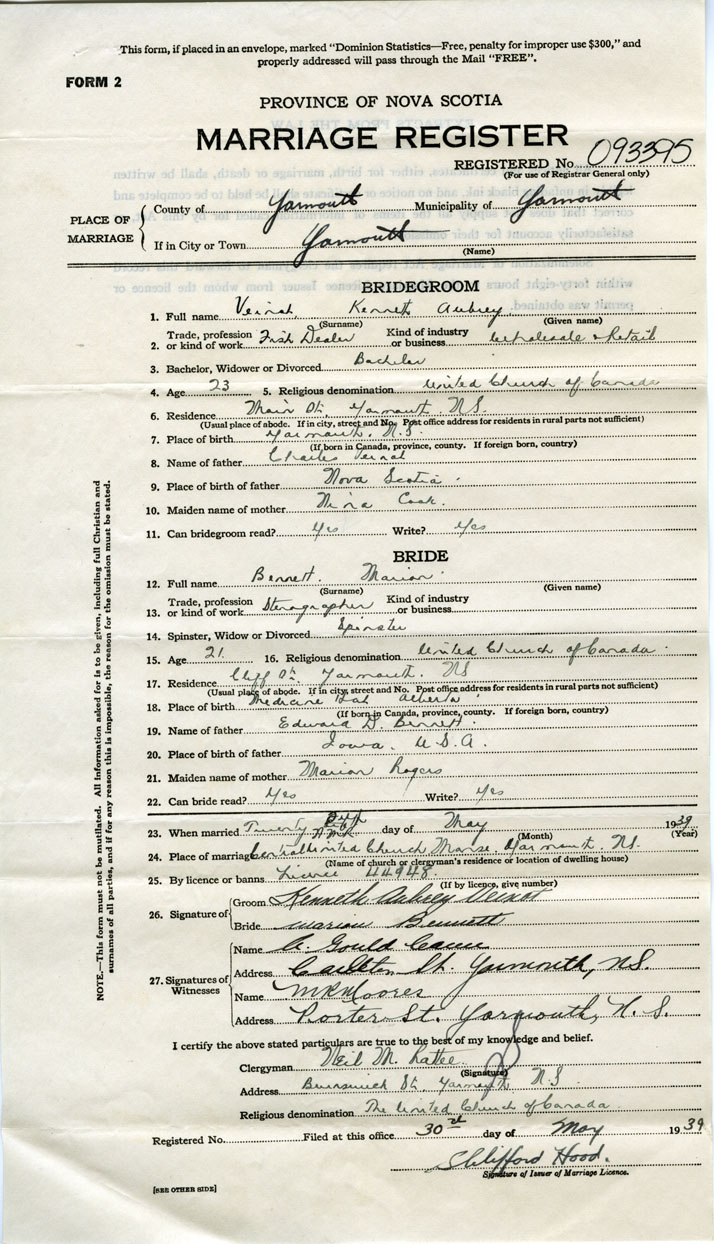 This form, if placed in an envelope, marked "Dominion Statistics—Free, penalty for improper use $300," and
properly addressed will pass through the Mail "FREE".
FORM 2
PROVINCE OF NOVA SCOTIA
MARRIAGE REGISTER
REGISTERED No. 093395
(For use of Registrar General only)
PLACE OF MARRIAGE
County of Yarmouth Municipality of Yarmouth
If in City or Town Yarmouth
(Name)
BRIDEGROOM
1. Full name Veinot Kenneth Aubrey
(Surname) (Given name)
2. Trade, profession or kind of work Fish Dealer Kind of industry or business Wholesale & Retail
3. Bachelor, Widower or Divorced Bachelor
4. Age 23 5. Religious denomination United Church of Canada
6. Residence Main St. Yarmouth NS.
(Usual place of abode. If in city, street and No. Post office address for residents in rural parts not sufficient)
7. Place of birth Yarmouth. N.S.
(If born in Canada, province, county. If foreign born, country)
8. Name of father Charles Veinot
9. Place of birth of father Nova Scotia
10. Maiden name of mother Nina Cook
11. Can bridegroom read? Yes Write? Yes
BRIDE
12. Full name Bennett. Marion
(Surname) (Given name)
13. Trade, profession or kind of work Stenographer Kind of industry or business
14. Spinster, Widow or Divorced Spinster
15. Age 21. 16. Religious denomination United Church of Canada.
17. Residence Cliff St. Yarmouth. NS
(Usual place of abode. If in city, street and No. Post office address for residents in rural parts not sufficient)
18. Place of birth Medicine Hat Alberta
(If born in Canada, province, county. If foreign born, country)
19. Name of father Edward D. Bennett
20. Place of birth of father Iowa. U.S.A.
21. Maiden name of mother Marion Rogers
22. Can bride read? Yes Write? Yes
23. When married Twenty day of May 1939
(Month) (Year)
24. Place of marriage Central United Church Manse, Yarmouth, NS.
(Name of church or clergyman's residence or location of dwelling house)
25. By licence or banns Licence 44948
(If by licence, give number)
26. Signature of
Groom Kenneth Aubrey Veinot
Bride Marion Bennett
27. Signatures of Witnesses
Name Gould
Address Carleton St. Yarmouth, N.S.
Name
Address Porter St. Yarmouth, N.S.
I certify the above stated particulars are true to the best of my knowledge and belief.
Clergyman Neil M.
(Signature)
Address Brunswick St. Yarmouth N.S
Religious denomination The United Church of Canada
Registered No. Filed at this office 30th day of May 1939
Clifford Hood.
Signature of Issuer of Marriage Licence.
[SEE OTHER SIDE]
NOTE.—This form must not be mutilated. All information asked for is to be given, including full Christian and
surnames of all parties, and if for any reason this is impossible, the reason for the omission must be stated.